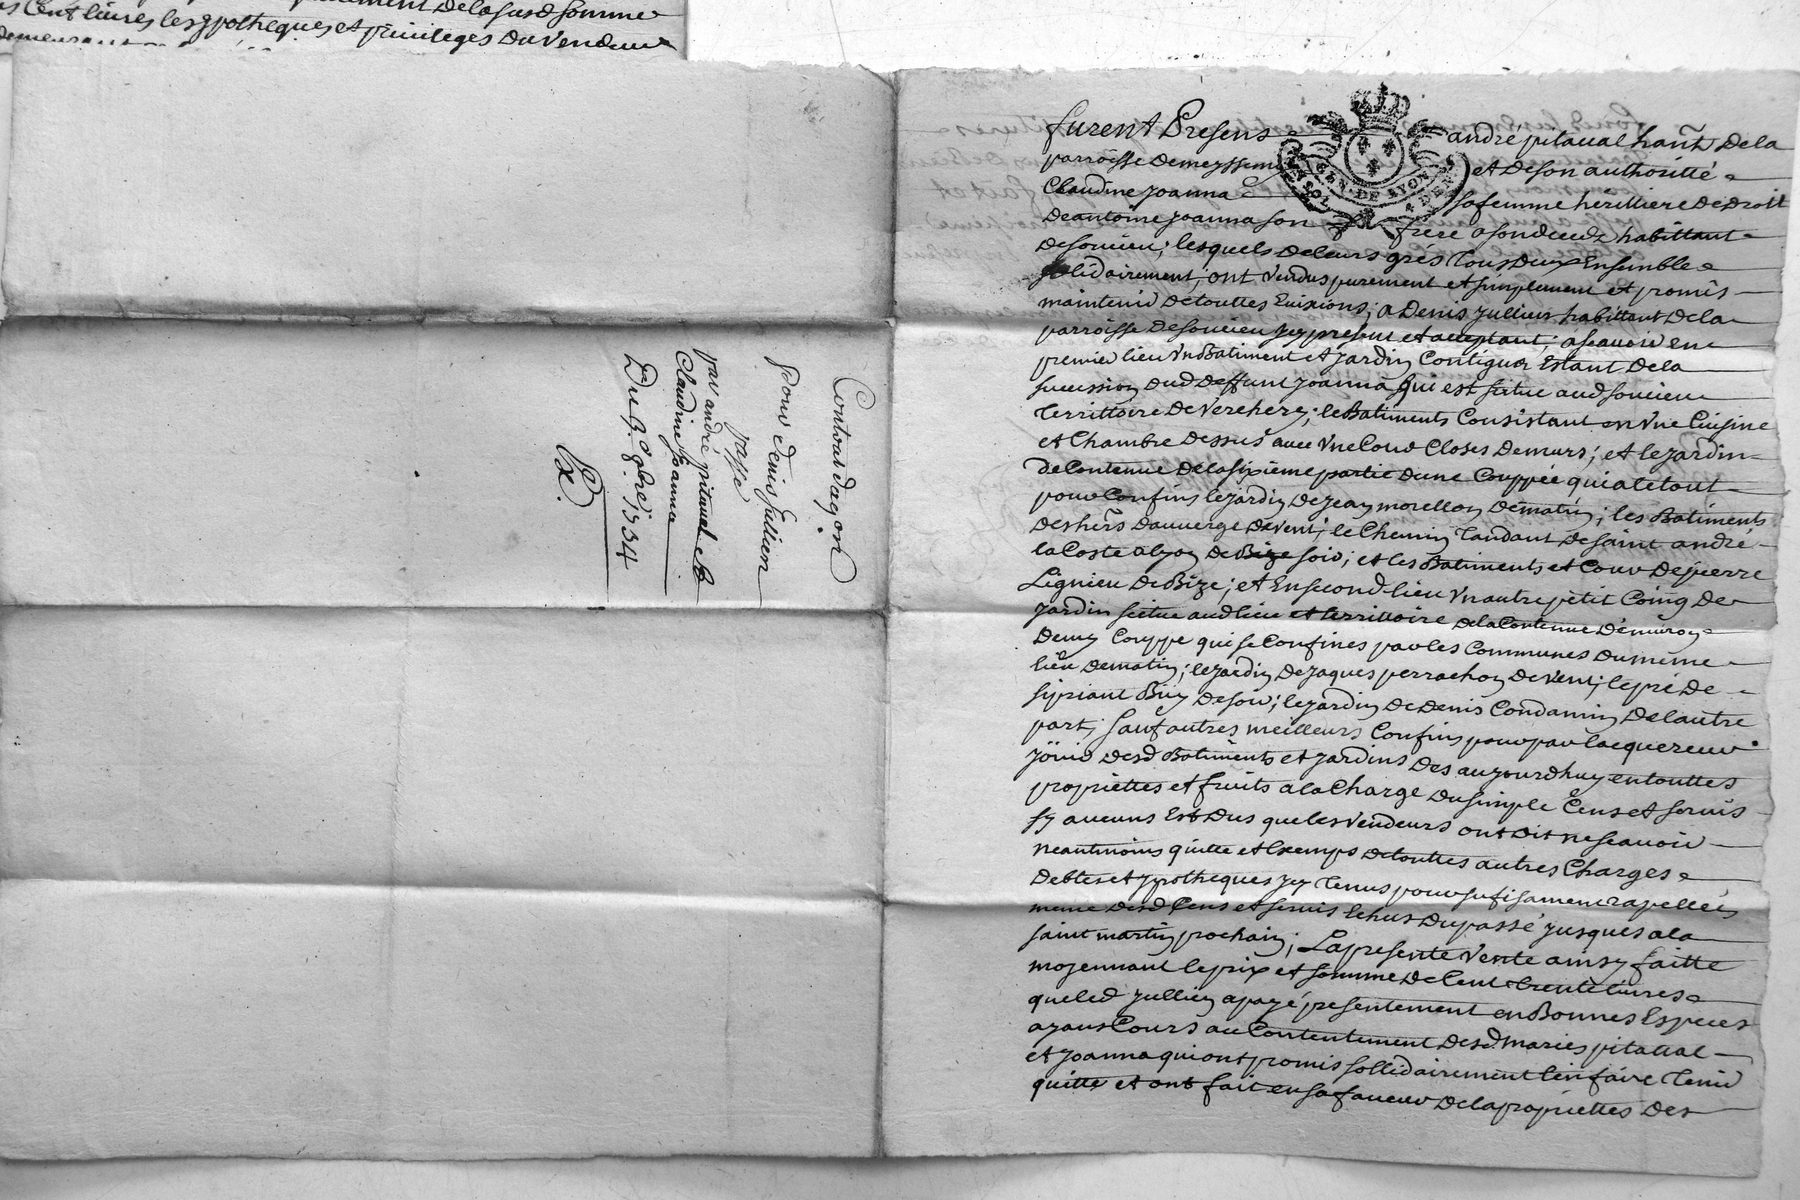 cent livres les hypotheques et privileges du vendeur
Contrat daq̃on
pour denis Jullien
passé
par andré pitaval et
Claudine Joanna
Du 9.e 8bre 1734
furent Presens andré pitaval hañt de la
parroisse de meyssemi et de son authoritté
Claudine Joanna sa femme hérittiere de droit
de antoine Joanna son frere a son deceds habittant
de soucieu; lesquels de leurs grés tous deux Ensemble
solidairement; ont vendus purement et simplement et promis
maintenir de touttes Euixions; a Denis Jullien habittant de la
parroisse de soucieu jcy present et acceptant; ascauoir en
premier lieu vn Batiment et jardin Contigus Estant de la
succession dud deffunt Joanna qui est scitue aud soucieu
territtoire de verchery; le Batiments Consistant en vne Cuisine
et Chambre dessus avec vne Cour Closes de murs; et le jardin
de Contenue de la sixième partie dune Couppée qui a le tout
pour Confins le jardin de jean morellon de matin; les Batiments
des hers dauverge de vent; le Chemin tandant de saint andre
la Coste a lyon de Bize soir; et les Batiments et Cour de pierre
Lignieu de Bize; et En second lieu vn autre petit Coing de
jardin scitue aud lieu et territtoire de la Contenue d'enuiron
demy Couppe qui se Confines par les Communes du même
lieu de matin; le jardin de jaques perrachon de vent; le pré de
sipriant Buy de soir; le jardin de Denis Condamin de l'autre
part; sauf autres meilleurs Confins pour par lacquereur
jöuir desd Batiments et jardins des aujourdhuy en touttes
propriettes et fruits a la Charge du simple Cens et seruis
sy aucuns Est dus que les vendeurs ont dit ne scauoir
neantmoins quitte et Exemps de touttes autres Charges
debtes et ypotheques jcy tenus pour sufisament rapellées
meme desd Cens et seruis Echus du passé jusques a la
saint martin prochain; La presente vente ainsy faitte
moyennant le prix et somme de Cent trente livres
que led Jullien a payé presentement en Bonnes Especes
ayans Cours au Contentement desd. mariés pitaval
et Joanna qui ont promis sollidairement l'en faire tenir
quitte et ont fait en sa faueur de la propriettes des